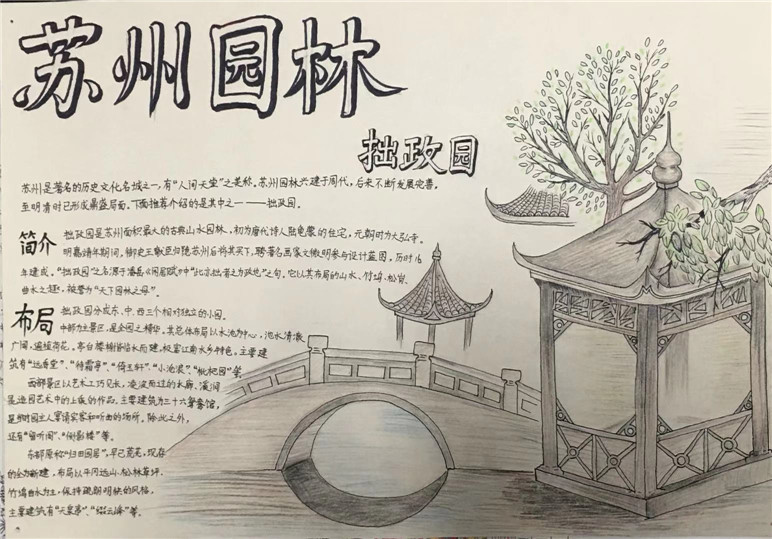 苏州园林
拙政园
苏州是著名的历史文化名城之一,有“人间天堂”之美称。苏州园林兴建于周代,后来不断发展完善。
至明清时已形成鼎盛局面。下面推荐介绍的是其中之一——拙政园。
简介
拙政园是苏州面积最大的古典山水园林,初为唐代诗人陆龟蒙的住宅,元朝时为大弘寺。
明嘉靖年期间,御史王献臣归隐苏州后将其买下,聘著名画家文徵明参与设计蓝图,历时16
年建成。“拙政园”之名源于潘岳《闲居赋》中“此亦拙者之为政也”之句。它以其布局的山水、竹坞、松岗、
曲水之趣,被誉为“天下园林之母”。
布局
拙政园分成东、中、西三个相对独立的小园。
中部为主景区,是全园之精华。其总体布局以水池为中心,池水清澈
广阔,遍植荷花。亭台楼榭皆临水而建,极富江南水乡特色,主要建
筑有“远香堂”、“待霜亭”、“倚玉轩”、“小沧浪”、“枇杷园”等。
西部景区以艺术工巧见长,凌波而过的水廊、溪涧
是造园艺术中的上佳的作品。主要建筑为三十六鸳鸯馆,
是当时园主人宴请宾客和听曲的场所。除此之外,
还有“留听阁”、“倒影楼”等。
东部原称“归田园居”,早已荒芜,现存
的全为新建,布局以平冈远山、松林草坪、
竹坞曲水为主,保持疏朗明快的风格,
主要建筑有“天泉亭”、“缀云峰”等。